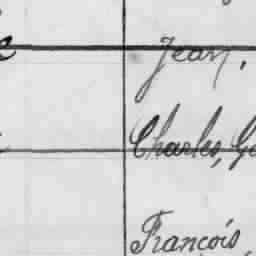 Jean,
Charles, Ge
François,